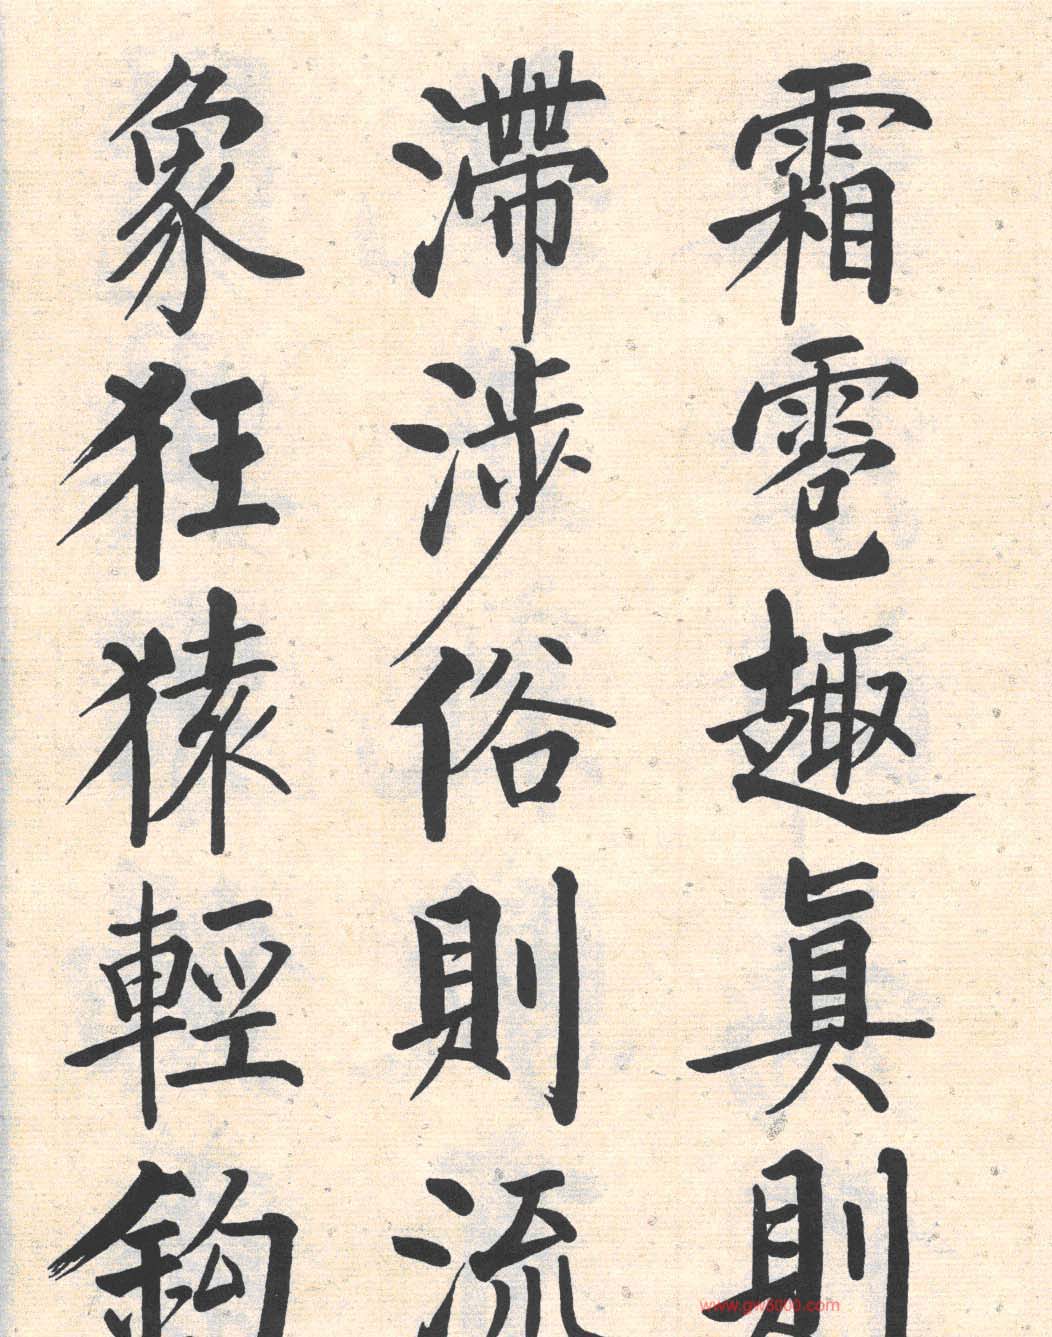 霜雹趣真則
滯涉俗則流
象狂猿輕鈎
www.gw8000.com